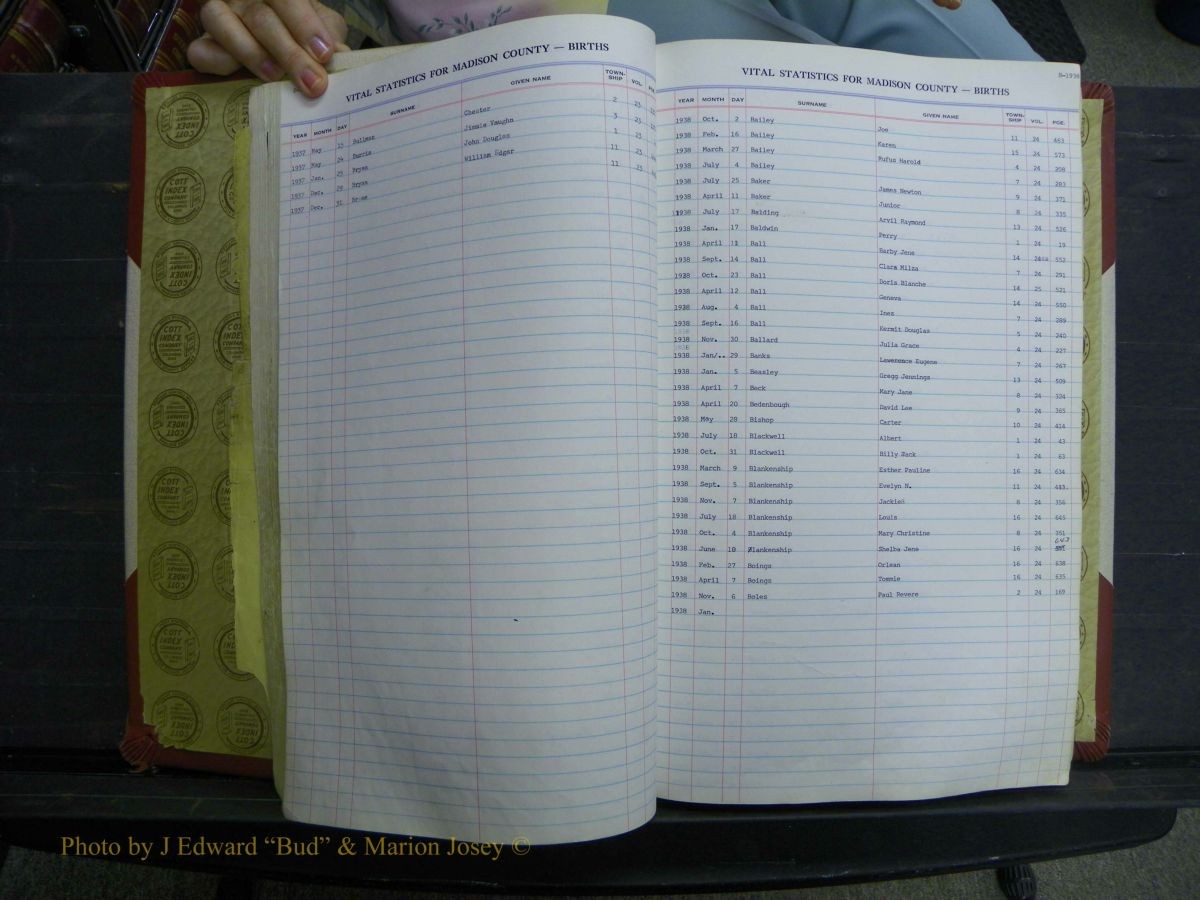 VITAL STATISTICS FOR MADISON COUNTY — BIRTHS
YEAR MONTH DAY SURNAME GIVEN NAME TOWN-SHIP VOL.
1937 May 15 Bullman Chester 2 23
1937 May 24 Burris Jimmie Vaughn 3 23
1937 Jan. 25 Bryan John Douglas 1 23
1937 Dec. 29 Bryan William Edgar 11 23
1937 Dec. 31 11 23
B-1938
VITAL STATISTICS FOR MADISON COUNTY — BIRTHS
YEAR MONTH DAY SURNAME GIVEN NAME TOWN-SHIP VOL. PGE.
1938 Oct. 2 Bailey Joe 11 24 453
1938 Feb. 16 Bailey Karen 15 24 573
1938 March 27 Bailey Rufus Harold 4 24 208
1938 July 4 Bailey 7 24 283
1938 July 25 Baker James Newton 9 24 371
1938 April 11 Baker Junior 8 24 335
1938 July 17 Balding Arvil Raymond 13 24 526
1938 Jan. 17 Baldwin Perry 1 24 19
1938 April 11 Ball Barby Jene 14 24 552
1938 Sept. 14 Ball Clara Milza 7 24 291
1938 Oct. 23 Ball Doris Blanche 14 25 521
1938 April 12 Ball Geneva 14 24 550
1938 Aug. 4 Ball Ines 7 24 289
1938 Sept. 16 Ball Kermit Douglas 5 24 240
1938 Nov. 30 Ballard Julia Grace 4 24 227
1938 Jan/.. 29 Banks Lawerence Eugene 7 24 267
1938 Jan. 5 Beasley Gregg Jennings 13 24 509
1938 April 7 Beck Mary Jane 8 24 324
1938 April 20 Bedenbough David Lee 9 24 365
1938 May 28 Bishop Carter 10 24 414
1938 July 18 Blackwell Albert 1 24 43
1938 Oct. 31 Blackwell Billy Jack 1 24 63
1938 March 9 Blankenship Esther Pauline 16 24 634
1938 Sept. 5 Blankenship Evelyn N. 11 24 443.
1938 Nov. 7 Blankenship Jackied 8 24 356
1938 July 18 Blankenship Louis 16 24 645
1938 Oct. 4 Blankenship Mary Christine 8 24 351
1938 June 10 Blankenship Shelba Jene 16 24 643
1938 Feb. 27 Boings Orlean 16 24 638
1938 April 7 Boings Tommie 16 24 635
1938 Nov. 6 Boles Paul Revere 2 24 169
1938 Jan.
COTT INDEX COMPANY
Photo by J Edward “Bud” & Marion Josey ©